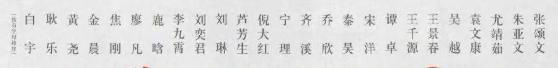 白宇
耿乐
黄尧
金晨
焦刚
廖凡
鹿晗
李九霄
刘奕君
刘琳
芦芳生
倪大红
宁理
齐溪
乔欣
秦昊
宋洋
谭卓
王千源
王景春
吴越
袁文康
尤靖茹
朱亚文
张颂文